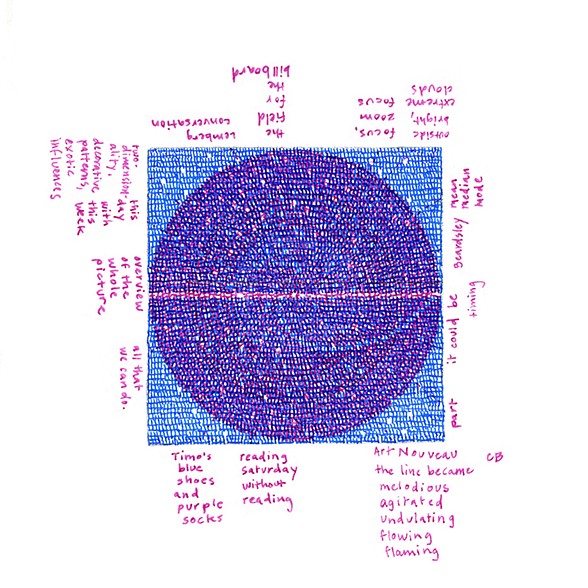 outside
bright,
extreme
clouds
focus,
zoom
focus
the
field
for
the
billboard
Lemberg
conversation
mean
median
mode
Beardsley
timing
it could be
part
Art Nouveau
the line became
melodious
agitated
undulating
flowing
flaming
CB
reading
saturday
without
reading
Timo's
blue
shoes
and
purple
socks
all that
we can do.
overview
of the
whole
picture
two- this
dimension-day
ality,
decorative with
patterns, this week
exotic
influences